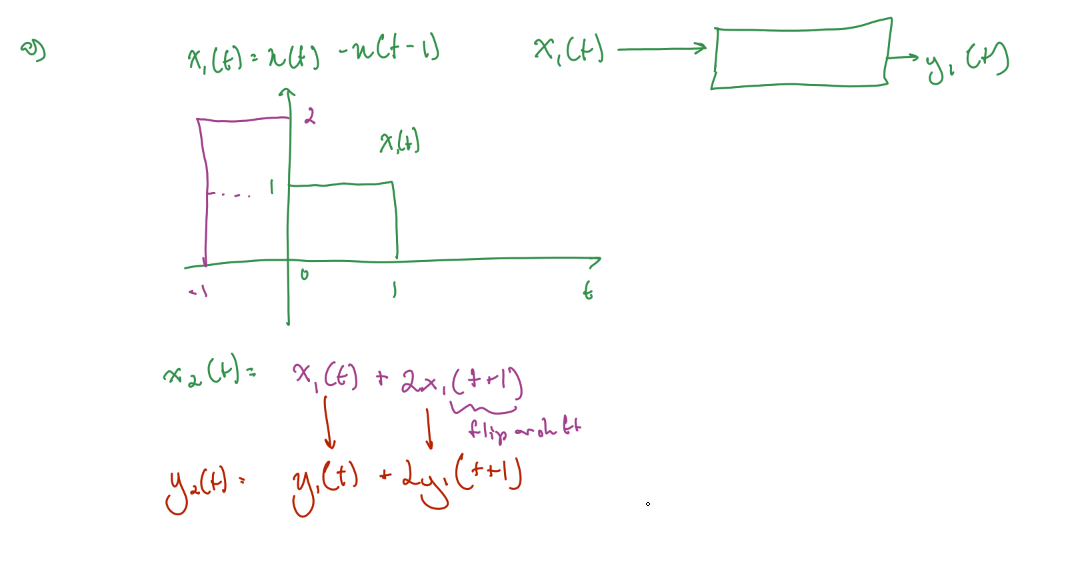 a)
x₁(t) = u(t) - u(t-1)
x₁(t)
y₁(t)
2
x₁(t)
1
0
-1
1
t
x₂(t) = x₁(t) + 2x₁(t+1)
flip
y₂(t) = y₁(t) + 2y₁(t+1)